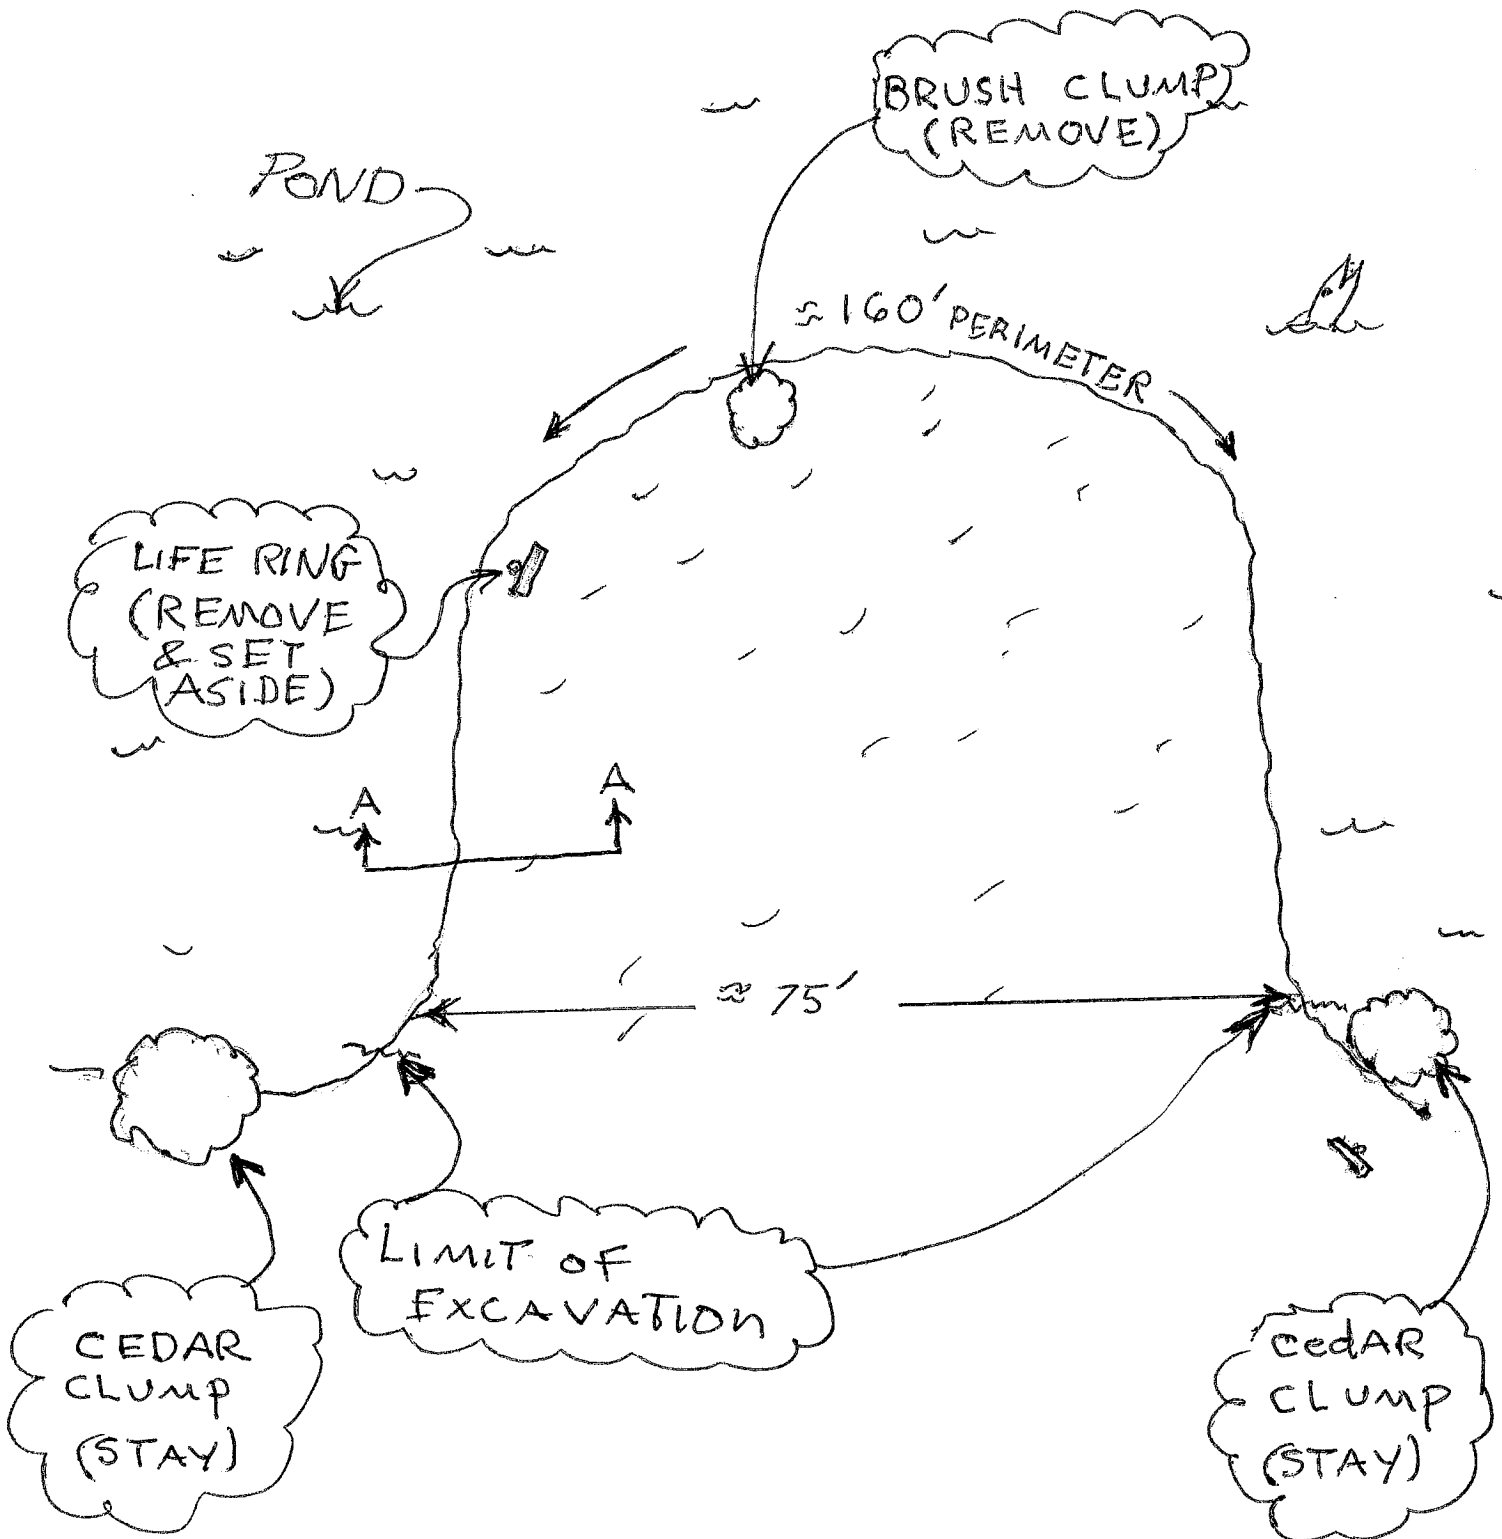 BRUSH CLUMP
(REMOVE)
POND
≈ 160' PERIMETER
LIFE RING
(REMOVE
& SET
ASIDE)
A
A
≈ 75'
LIMIT OF
EXCAVATION
CEDAR
CLUMP
(STAY)
cedAR
CLUMP
(STAY)